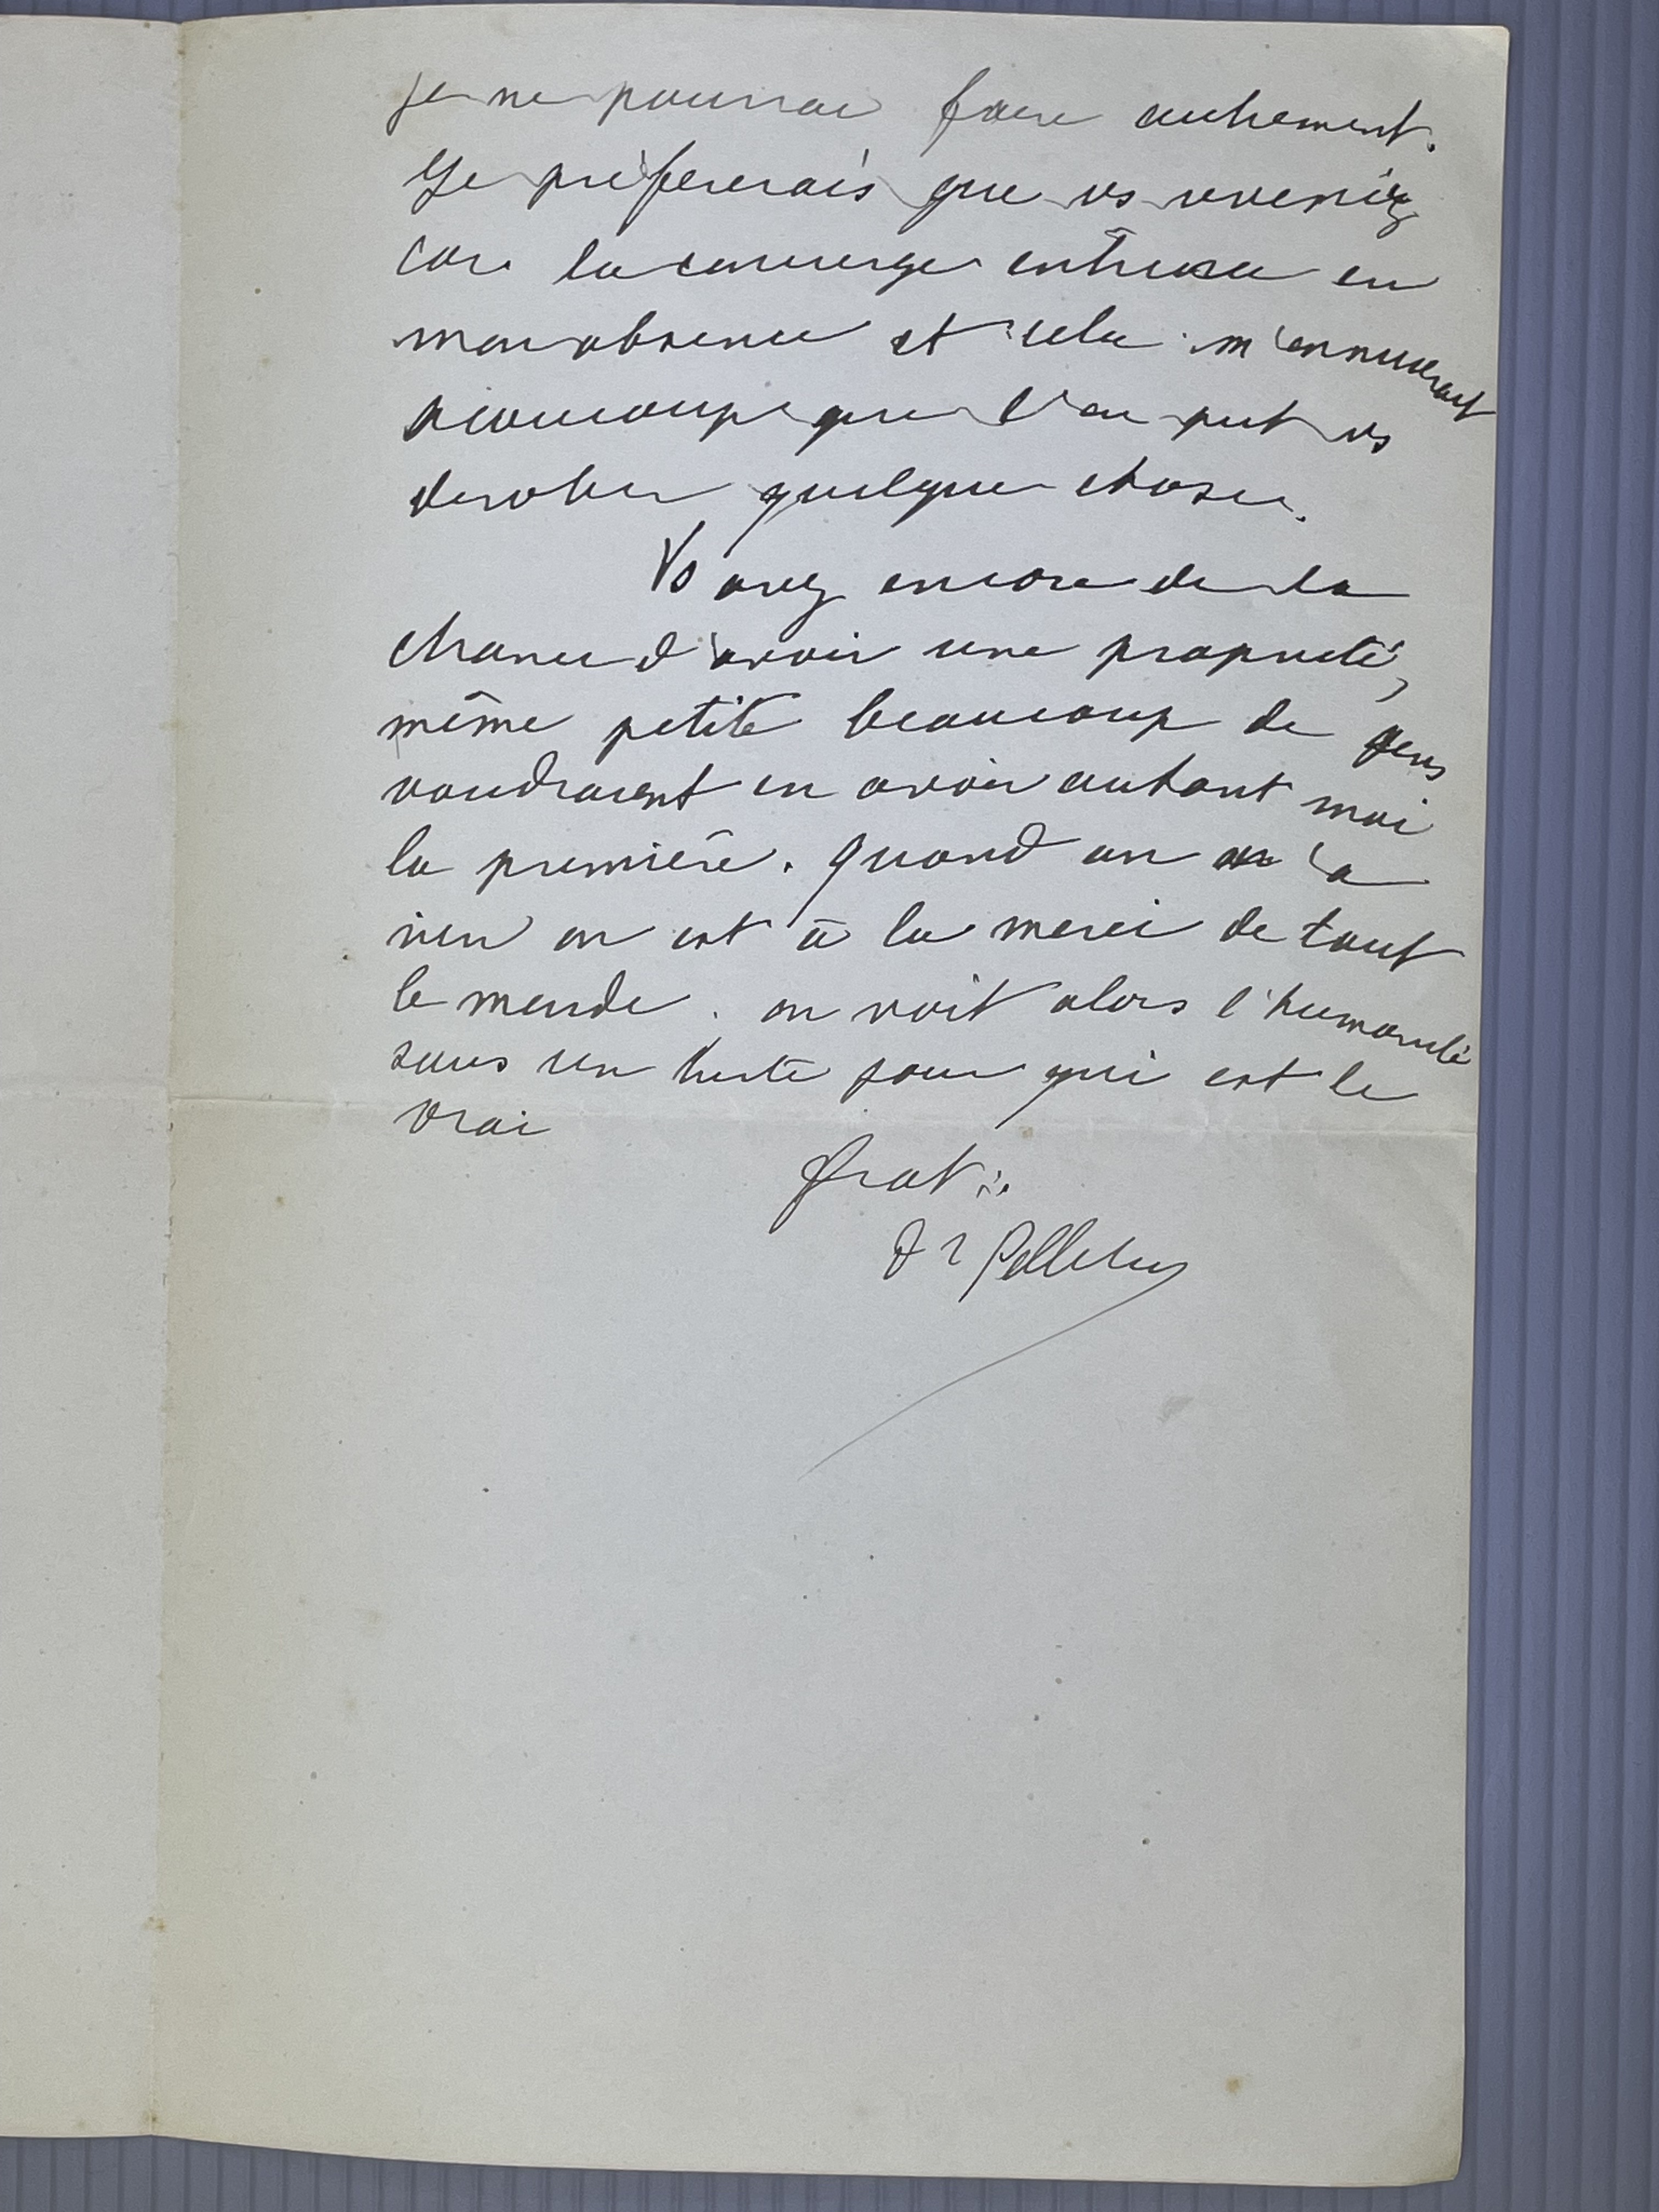 je ne pourrai faire autrement.
Je préférerais que vs veniez
car la concierge entrera en
mon absence et cela m'ennuierait
beaucoup que l'on put vs
derober quelque chose.
Vs avez encore de la
chance d'avoir une propriété,
même petite beaucoup de gens
voudraient en avoir autant moi
la première. Quand on n'a
rien on est à la merci de tout
le monde. on voit alors l'humanité
sous un triste jour qui est le
vrai
frat∴
Dr Pelletier